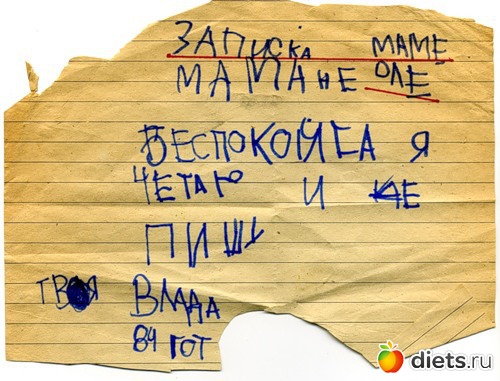 ЗАПИСКА МАМЕ
ОЛЕ
МАМА НЕ
БЕСПОКОЙСА Я
ЧЕТАЮ И
ПИШУ
ТВОЯ ВЛАДА
84 ГОТ
diets.ru